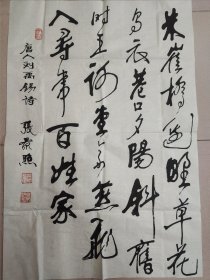 朱雀橋邊野草花
烏衣巷口夕陽斜舊
時王謝堂前燕飛
入尋常百姓家
唐人刘禹錫詩
張